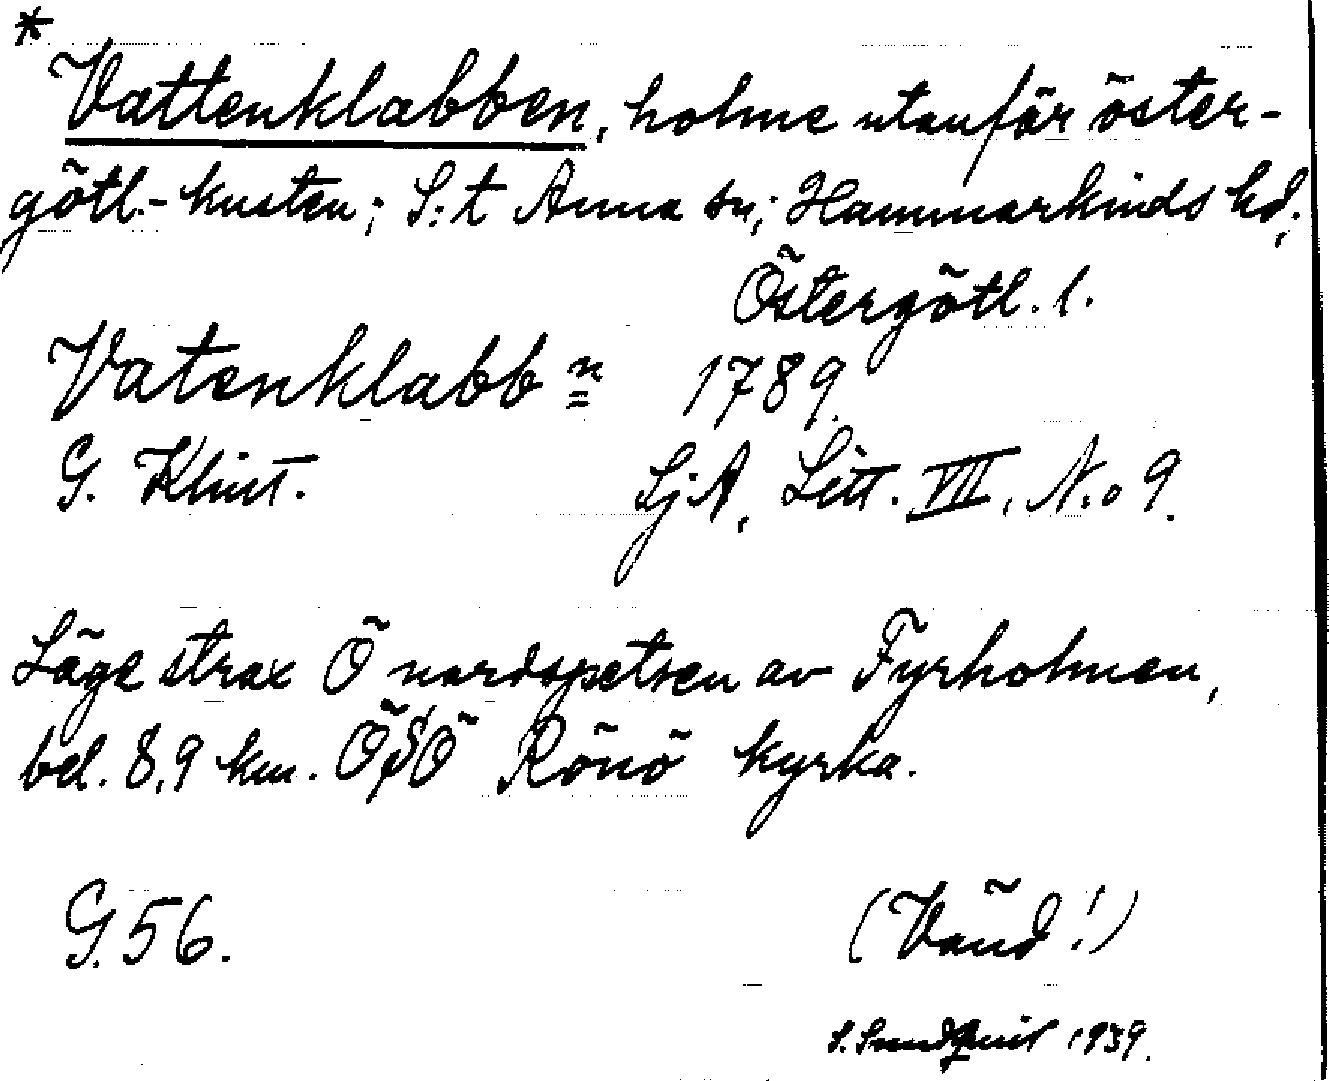 *
Vattenklabben, holme utanför öster-
götl.-kusten; S:t Anna sn; Hammarkinds hd,
Östergötl. l.
Vatenklabb n 1789.
G. Klint. SjA, Litt. VII, N:o 9.
Läge strax Ö nordspetsen av Fyrholmen,
bel. 8,9 km. ÖSÖ Rönö kyrka.
G. 56. (Vänd!)
S. Sundquist 1939.